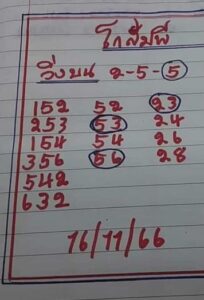 โกสัมพี
วิ่งบน 2-5-5
152 52 23
253 53 24
154 54 26
356 56 28
542
632
16/11/66